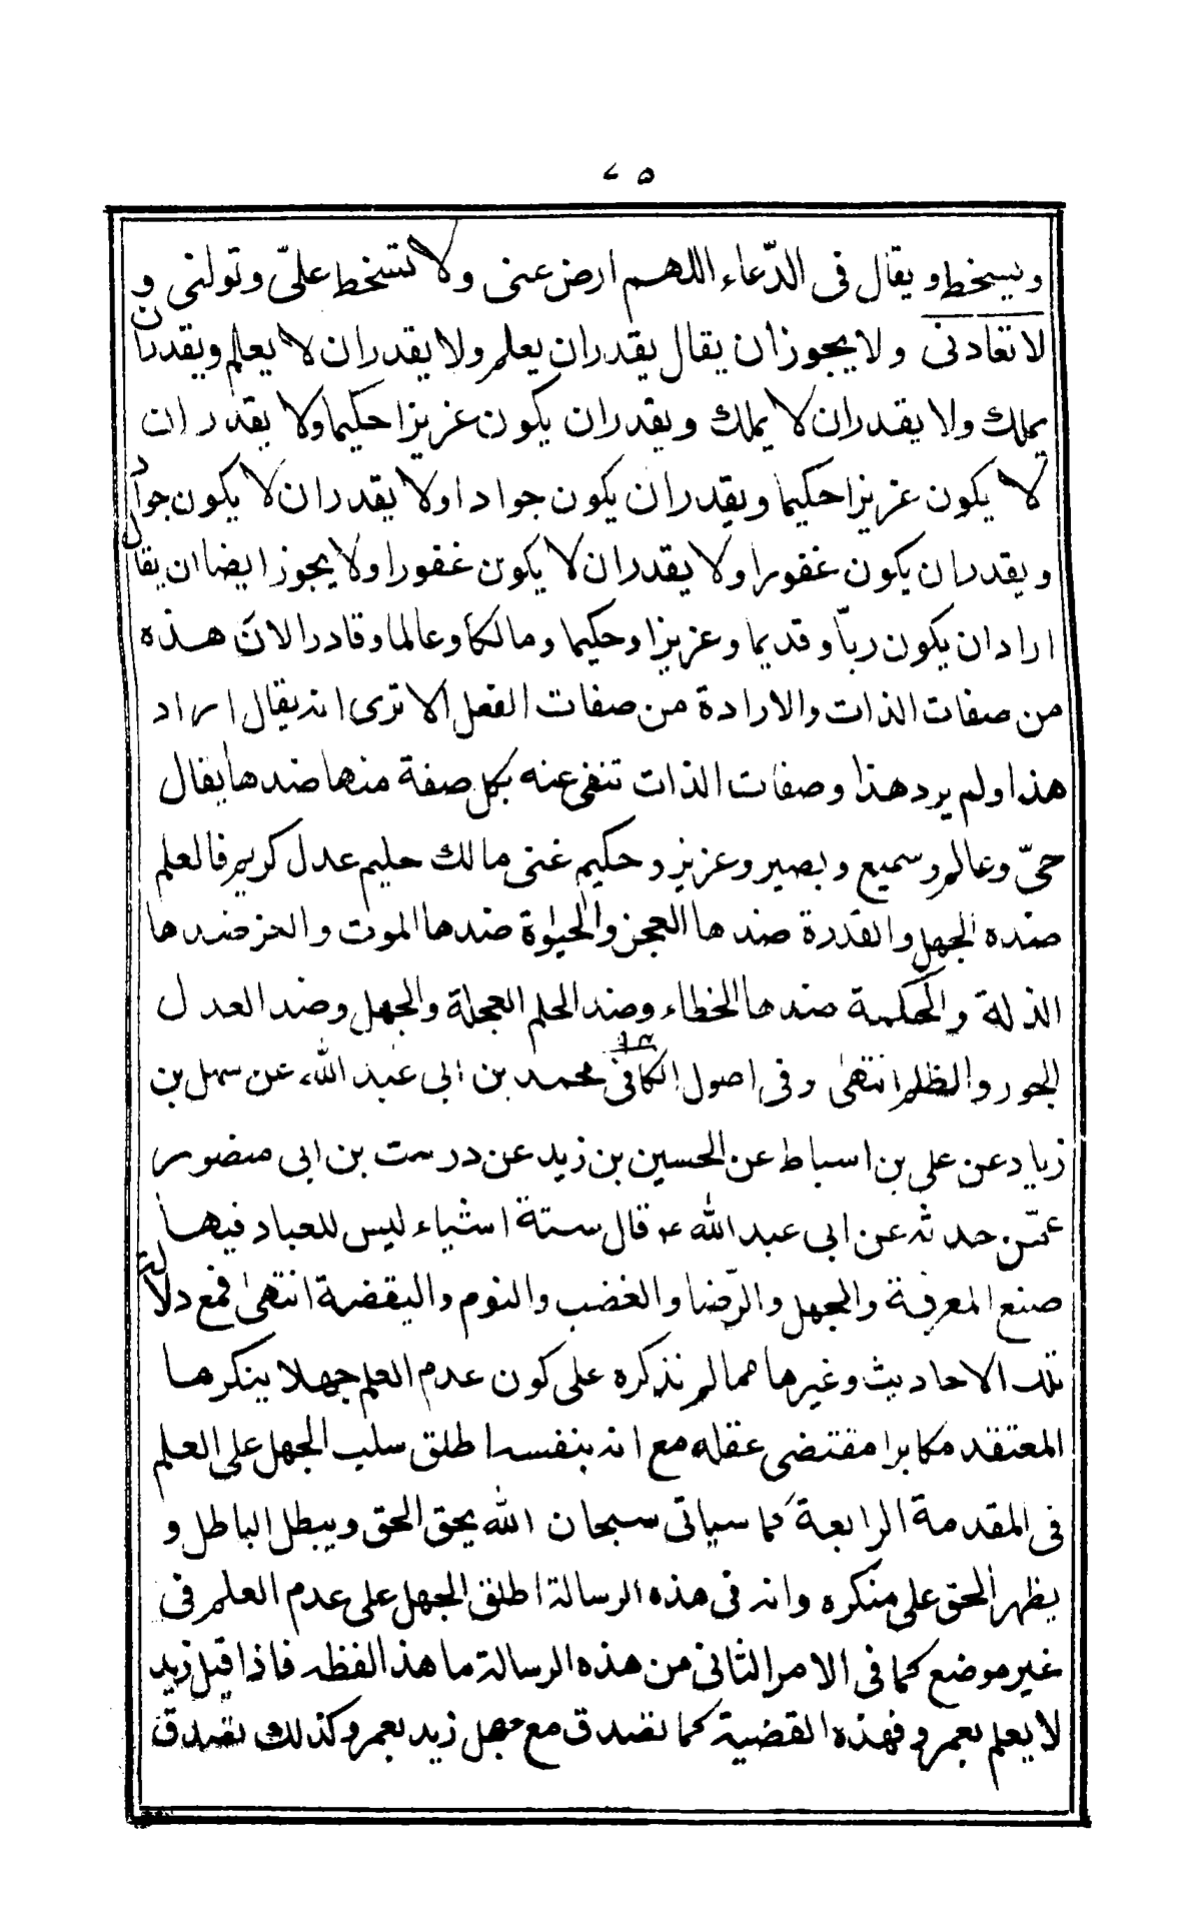 ٧٥
ويسخط ويقال فى الدّعاء اللهم ارض عنى ولا تسخط علىّ وتولنى و
لا تعادنى ولا يجوز ان يقال يقدر ان يعلم ولا يقدر ان لا يعلم ويقدر ان
يملك ولا يقدر ان لا يملك ويقدر ان يكون عزيزا حكيما ولا يقدر ان
لا يكون عزيزا حكيما ويقدر ان يكون جوادا ولا يقدر ان لا يكون جواد
ويقدر ان يكون غفورا ولا يقدر ان لا يكون غفورا ولا يجوز ايضا ان يقال
اراد ان يكون ربّا وقديما وعزيزا وحكيما ومالكا وعالما وقادرا لان هذه
من صفات الذات والارادة من صفات الفعل الا ترى انه يقال اراد
هذا ولم يرد هذا وصفات الذات تنفى عنه بكل صفة منها ضدها يقال
حىّ وعالم وسميع وبصير وعزيز وحكيم غنى مالك حليم عدل كريم فالعلم
ضده الجهل والقدرة ضدها العجز والحيٰوة ضدها الموت والعز ضدها
الذلة والحكمة ضدها الخطاء وضد الحلم العجلة والجهل وضد العدل
الجور والظلم انتهىٰ وفى اصول الكافى محمد بن ابى عبد الله عن سهل بن
زياد عن على بن اسباط عن الحسين بن زيد عن درست بن ابى منصور
عمّن حدثه عن ابى عبد الله ع قال ستة اشياء ليس للعباد فيها
صنع المعرفة والجهل والرّضا والغضب والنوم واليقضة انتهىٰ فمع دلالة
تلك الاحاديث وغيرها مما لم نذكره على كون عدم العلم جهلا ينكرها
المعتقد مكابرا مقتضى عقله مع انه بنفسه اطلق سلب الجهل على العلم
فى المقدمة الرابعة كما سياتى سبحان الله يحق الحق ويبطل الباطل و
يظهر الحق على منكره وانه فى هذه الرسالة اطلق الجهل على عدم العلم فى
غير موضع كما فى الامر الثانى من هذه الرسالة ما هذا لفظه فاذا قيل زيد
لا يعلم بعمرو فهذه القضية كما تصدق مع جهل زيد بعمرو كذلك تصدق